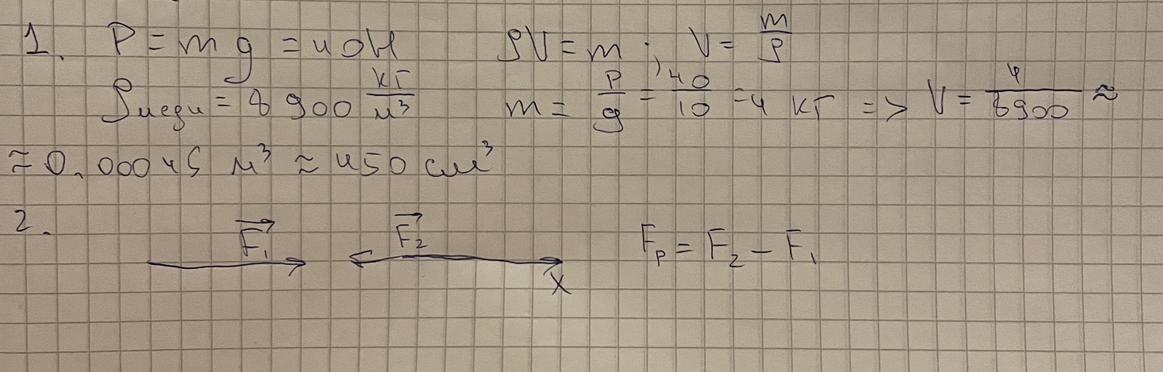 1. P = mg = 40Н ρV = m; V = m/ρ
ρмеди = 8 900 кг/м³ m = P/g = 40/10 = 4 кг => V = 4/8900 ≈
≈ 0.00045 м³ ≈ 450 см³
2. F₁ F₂ Fр = F₂ − F₁
X